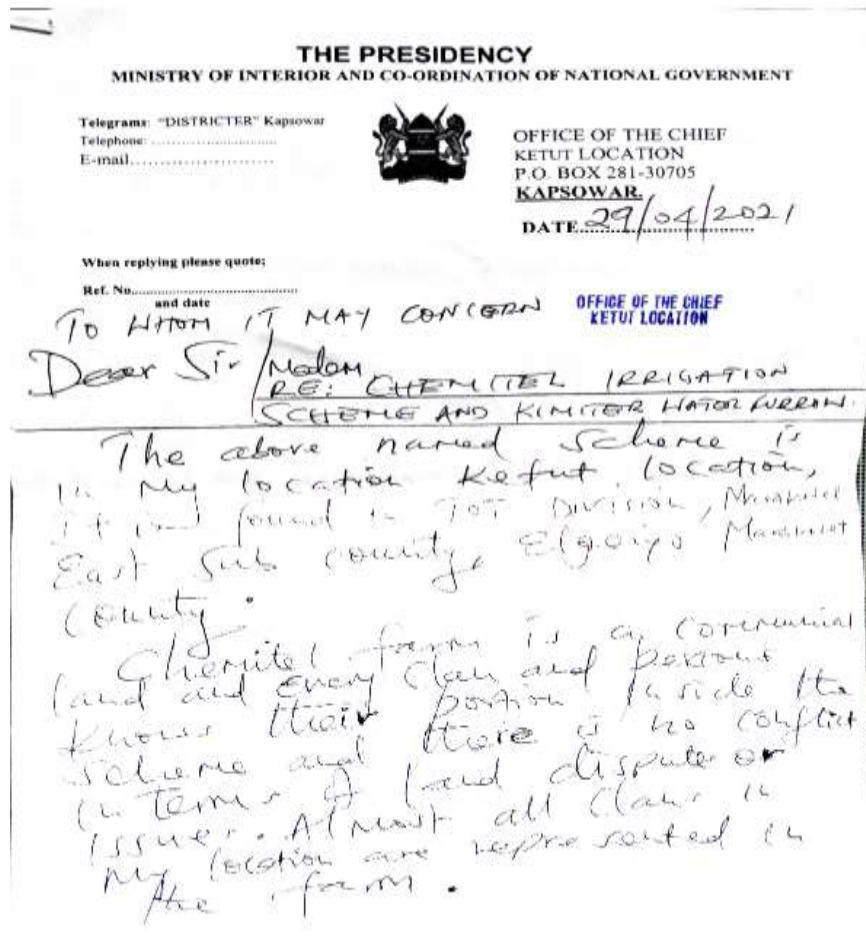 THE PRESIDENCY
MINISTRY OF INTERIOR AND CO-ORDINATION OF NATIONAL GOVERNMENT
Telegrams: "DISTRICTER" Kapsowar
Telephone: ............................
E-mail........................
OFFICE OF THE CHIEF
KETUT LOCATION
P.O. BOX 281-30705
KAPSOWAR.
DATE 29/04/2021
When replying please quote;
Ref. No....................................
and date
OFFICE OF THE CHIEF
KETUT LOCATION
TO WHOM IT MAY CONCERN
Dear Sir/Madam
RE: CHEMITEL IRRIGATION
SCHEME AND KIMITER WATER FURROW.
The above named Scheme is
in my location Ketut location,
It is found in TOT Division,
East Sub county, Elgeiyo Marakwet
County.
Chemitel farm is a communial
land and every clan and persons
knows their portion inside the
scheme and there is no conflict
in terms of land dispute or
issues. Almost all clans in
my location are represented in
the farm.